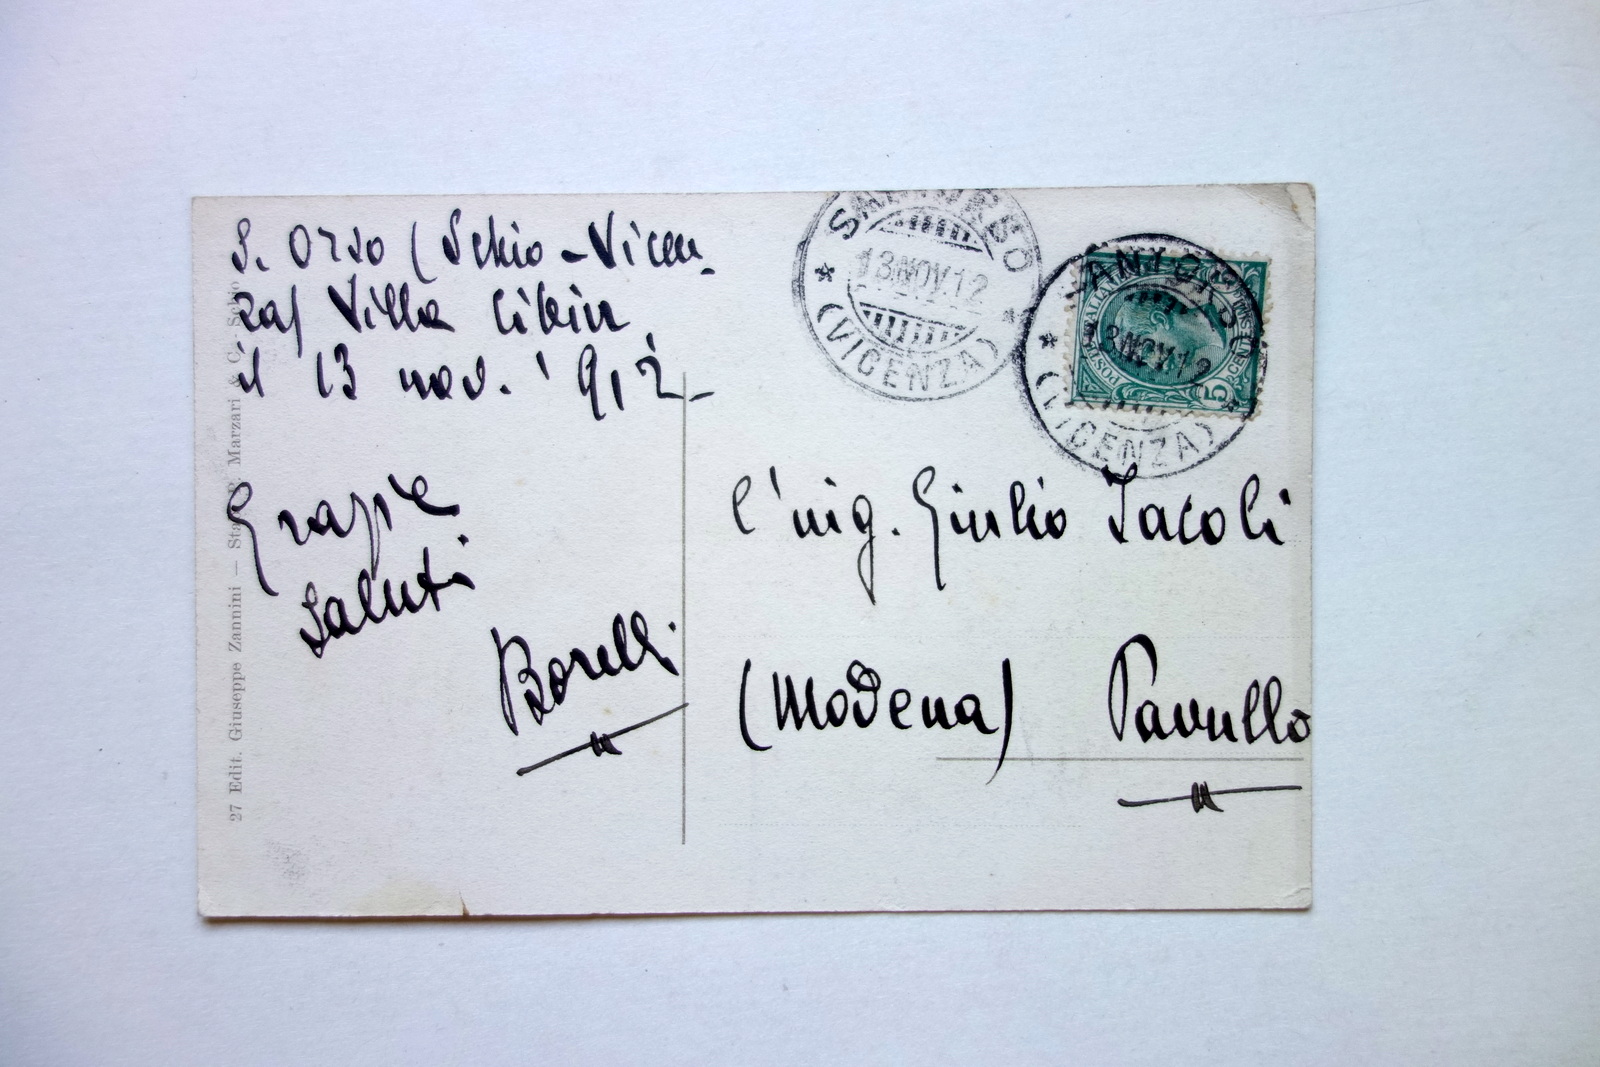 S. Orso (Schio - Vicen-
za) Villa
il 13 nov. '912 -
Grazie
saluti
Borelli
27 Edit. Giuseppe Zannini — Marzari & C. Schio
SANTORSO
13 NOV. 12
(VICENZA)
SANTORSO
13 NOV. 12
(VICENZA)
POSTE ITALIANE
CENT.
5
l'ing. Giulio Jacoli
(Modena) Pavullo